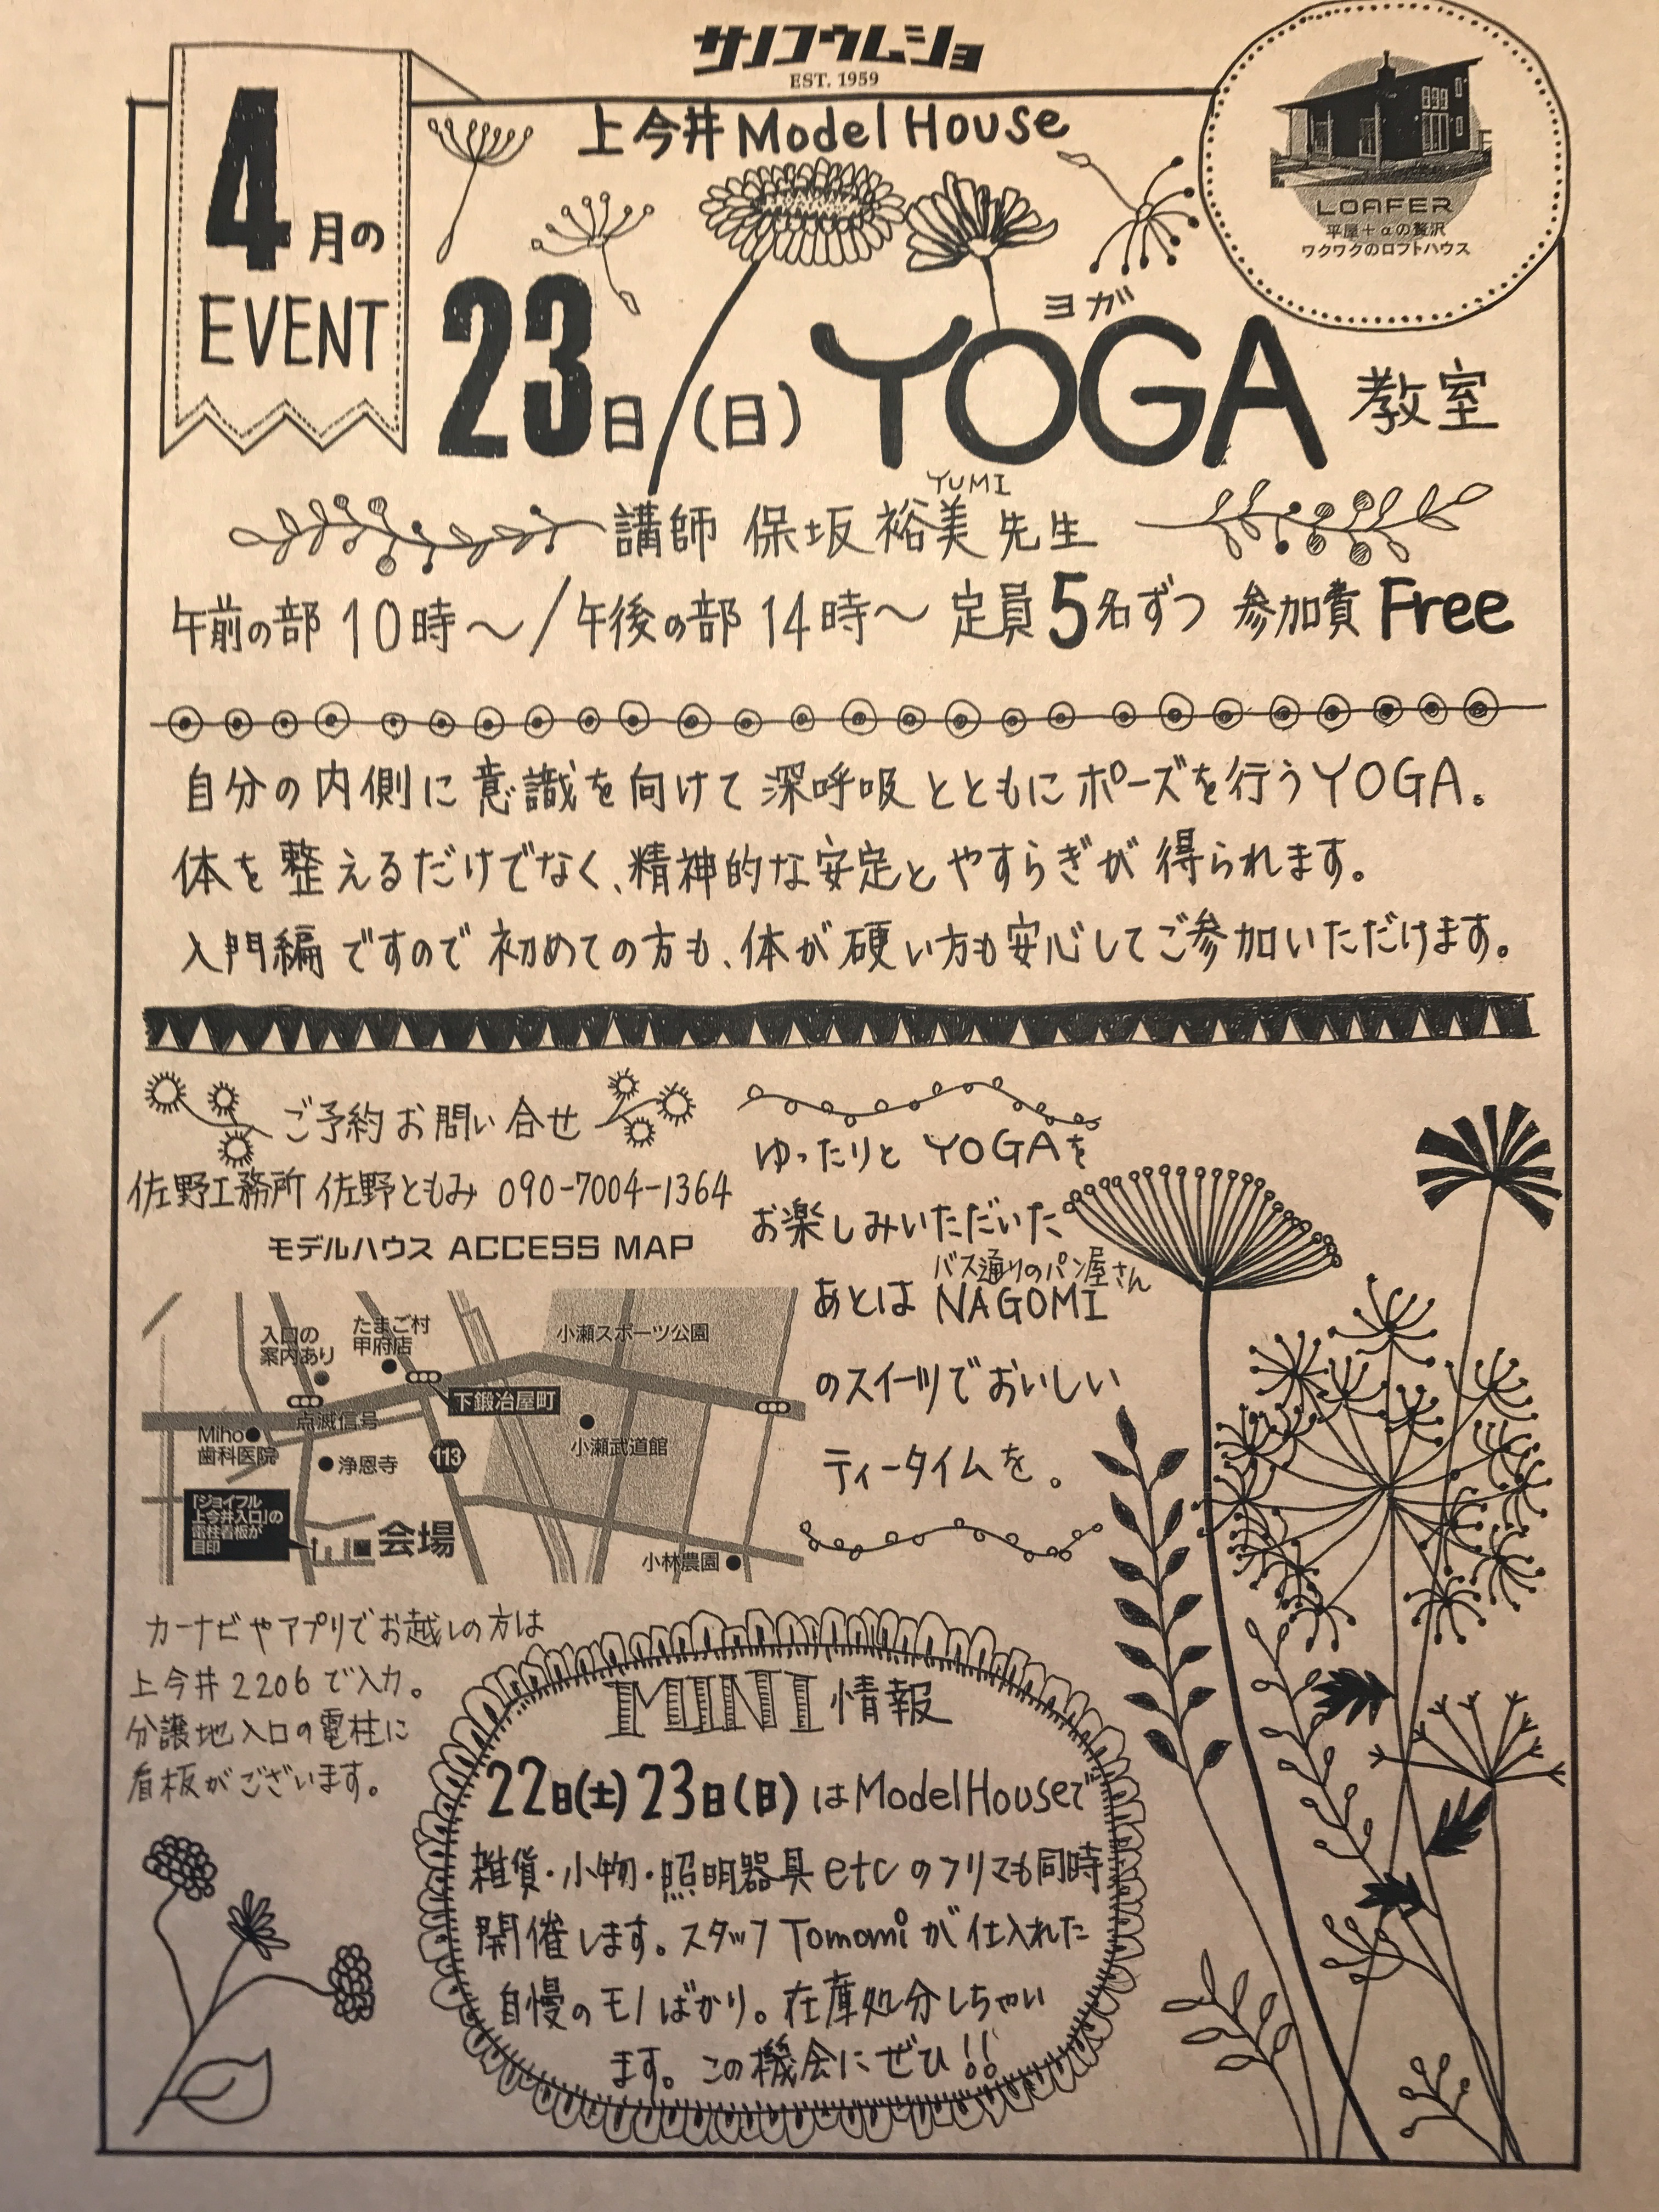 サノコウムショ
EST. 1959
4月の
EVENT
上今井 Model House
LOAFER
平屋+αの贅沢
ワクワクのロフトハウス
23日/(日)
ヨガ
YOGA 教室
YUMI
講師 保坂 裕美 先生
午前の部 10時〜/午後の部 14時〜 定員5名ずつ 参加費 Free
自分の内側に意識を向けて深呼吸とともにポーズを行うYOGA。
体を整えるだけでなく、精神的な安定とやすらぎが得られます。
入門編ですので初めての方も、体が硬い方も安心してご参加いただけます。
ご予約お問い合せ
佐野工務所 佐野ともみ 090-7004-1364
モデルハウス ACCESS MAP
入口の
案内あり
たまご村
甲府店
小瀬スポーツ公園
下鍛冶屋町
点滅信号
Miho
歯科医院
浄恩寺
113
小瀬武道館
「ジョイフル
上今井入口」の
電柱看板が
目印
会場
小林農園
ゆったりと YOGAを
お楽しみいただいた
あとは NAGOMI
バス通りのパン屋さん
のスイーツでおいしい
ティータイムを。
カーナビやアプリでお越しの方は
上今井2206で入力。
分譲地入口の電柱に
看板がございます。
MINI 情報
22日(土)23日(日)はModel Houseで
雑貨・小物・照明器具etcのフリマも同時
開催します。スタッフ Tomomiが仕入れた
自慢のモノばかり。在庫処分しちゃい
ます。この機会にぜひ!!